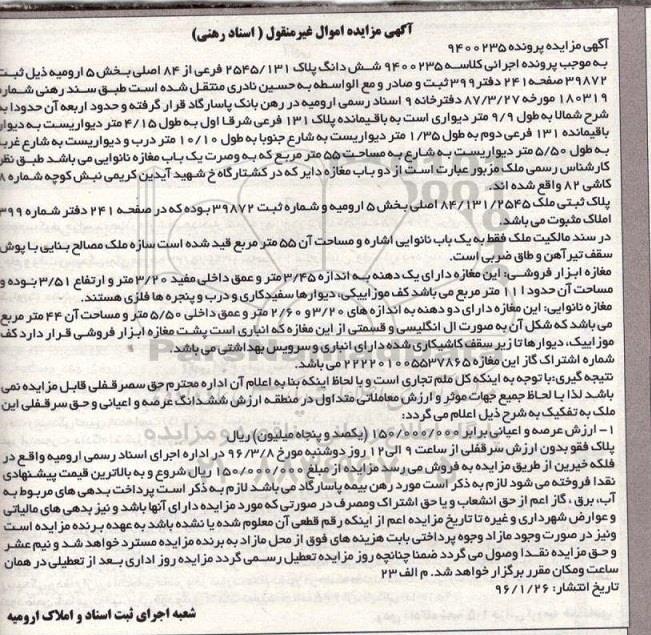 آگهی مزایده اموال غیرمنقول ( اسناد رهنی)
آگهی مزایده پرونده ۹۴۰۰۲۳۵
به موجب پرونده اجرائی کلاسه ۹۴۰۰۲۳۵ شش دانگ پلاک ۲۵۴۵/۱۳۱ فرعی از ۸۴ اصلی بخش ۵ ارومیه ذیل ثبت
۳۹۸۷۲ صفحه ۲۴۱ دفتر ۳۹۹ ثبت و صادر و مع الواسطه به حسین نادری منتقل شده است طبق سند رهنی شماره
۱۸۰۳۱۹ مورخه ۸۷/۳/۲۷ دفترخانه ۹ اسناد رسمی ارومیه در رهن بانک پاسارگاد قرار گرفته و حدود اربعه آن حدودا به
شرح شمالا به طول ۹/۹ متر دیواری است به باقیمانده پلاک ۱۳۱ فرعی شرقا اول به طول ۴/۱۵ متر دیواریست به دیوار
باقیمانده ۱۳۱ فرعی دوم به طول ۱/۳۵ متر دیواریست به شارع جنوبا به طول ۱۰/۱۰ متر درب و دیواریست به شارع غربا
به طول ۵/۵۰ متر دیواریست به شارع به مساحت ۵۵ متر مربع که به وصرت یک باب مغازه نانوایی می باشد طبق نظر
کارشناس رسمی ملک مزبور عبارت است از دو باب مغازه دایر که در کشتارگاه خ شهید آیدین کریمی نبش کوچه شماره ۸
کاشی ۸۲ واقع شده اند.
پلاک ثبتی ملک ۸۴/۱۳۱/۲۵۴۵ اصلی بخش ۵ ارومیه و شماره ثبت ۳۹۸۷۲ بوده که در صفحه ۲۴۱ دفتر شماره ۳۹۹
املاک مثبوت می باشد.
در سند مالکیت ملک فقط به یک باب نانوایی اشاره و مساحت آن ۵۵ متر مربع قید شده است سازه ملک مصالح بنایی با پوشش
سقف تیرآهن و طاق ضربی است.
مغازه ابزار فروشی: این مغازه دارای یک دهنه به اندازه ۳/۴۵ متر و عمق داخلی مفید ۳/۲۰ متر و ارتفاع ۳/۵۱ بوده و
مساحت آن حدود ۱۱ متر مربع می باشد کف موزاییکی، دیوارها سفیدکاری و درب و پنجره ها فلزی هستند.
مغازه نانوایی: این مغازه دارای دو دهنه به اندازه های ۳/۲۰ و ۲/۶۰ متر و عمق داخلی ۵/۵۰ متر و مساحت آن ۴۴ متر مربع
می باشد که شکل آن به صورت ال انگلیسی و قسمتی از این مغازه که انباری است پشت مغازه ابزار فروشی قرار دارد کف
موزاییک، دیوارها تا زیر سقف کاشیکاری شده دارای انباری و سرویس بهداشتی می باشد.
شماره اشتراک گاز این مغازه ۲۲۲۲۰۱۰۰۵۵۳۷۸۶۵ می باشد.
نتیجه گیری: با توجه به اینکه کل ملم تجاری است و با لحاظ اینکه بنا به اعلام آن اداره محترم حق سصرقفلی قابل مزایده نمی
باشد لذا با لحاظ جمیع جهات موثر و ارزش معاملاتی متداول در منطقه ارزش ششدانگ عرصه و اعیانی و حق سرقفلی این
ملک به تفکیک به شرح ذیل اعلام می گردد:
۱- ارزش عرصه و اعیانی برابر ۱۵۰/۰۰۰/۰۰۰ (یکصد و پنجاه میلیون) ریال
پلاک فقو بدون ارزش سرقفلی از ساعت ۹ الی ۱۲ روز دوشنبه مورخ ۹۶/۳/۸ در اداره اجرای اسناد رسمی ارومیه واقع در
فلکه خیرین از طریق مزایده به فروش می رسد مزایده از مبلغ ۱۵۰/۰۰۰/۰۰۰ ریال شروع و به بالاترین قیمت پیشنهادی
نقدا فروخته می شود لازم به ذکر است مورد رهن بیمه پاسارگاد می باشد لازم به ذکر است پرداخت بدهی های مربوط به
آب، برق ، گاز اعم از حق انشعاب و یا حق اشتراک ومصرف در صورتی که مورد مزایده دارای آنها باشد و نیز بدهی های مالیاتی
و عوارض شهرداری و غیره تا تاریخ مزایده اعم از اینکه رقم قطعی آن معلوم شده یا نشده باشد به عهده برنده مزایده است
ونیز در صورت وجود مازاد وجوه پرداختی بابت هزینه های فوق از محل مازاد به برنده مزایده مسترد خواهد شد و نیم عشر
و حق مزایده نقدا وصول می گردد ضمنا چنانچه روز مزایده تعطیل رسمی گردد مزایده روز اداری بعد از تعطیلی در همان
ساعت ومکان مقرر برگزار خواهد شد. م الف ۲۳
تاریخ انتشار: ۹۶/۱/۲۶
شعبه اجرای ثبت اسناد و املاک ارومیه